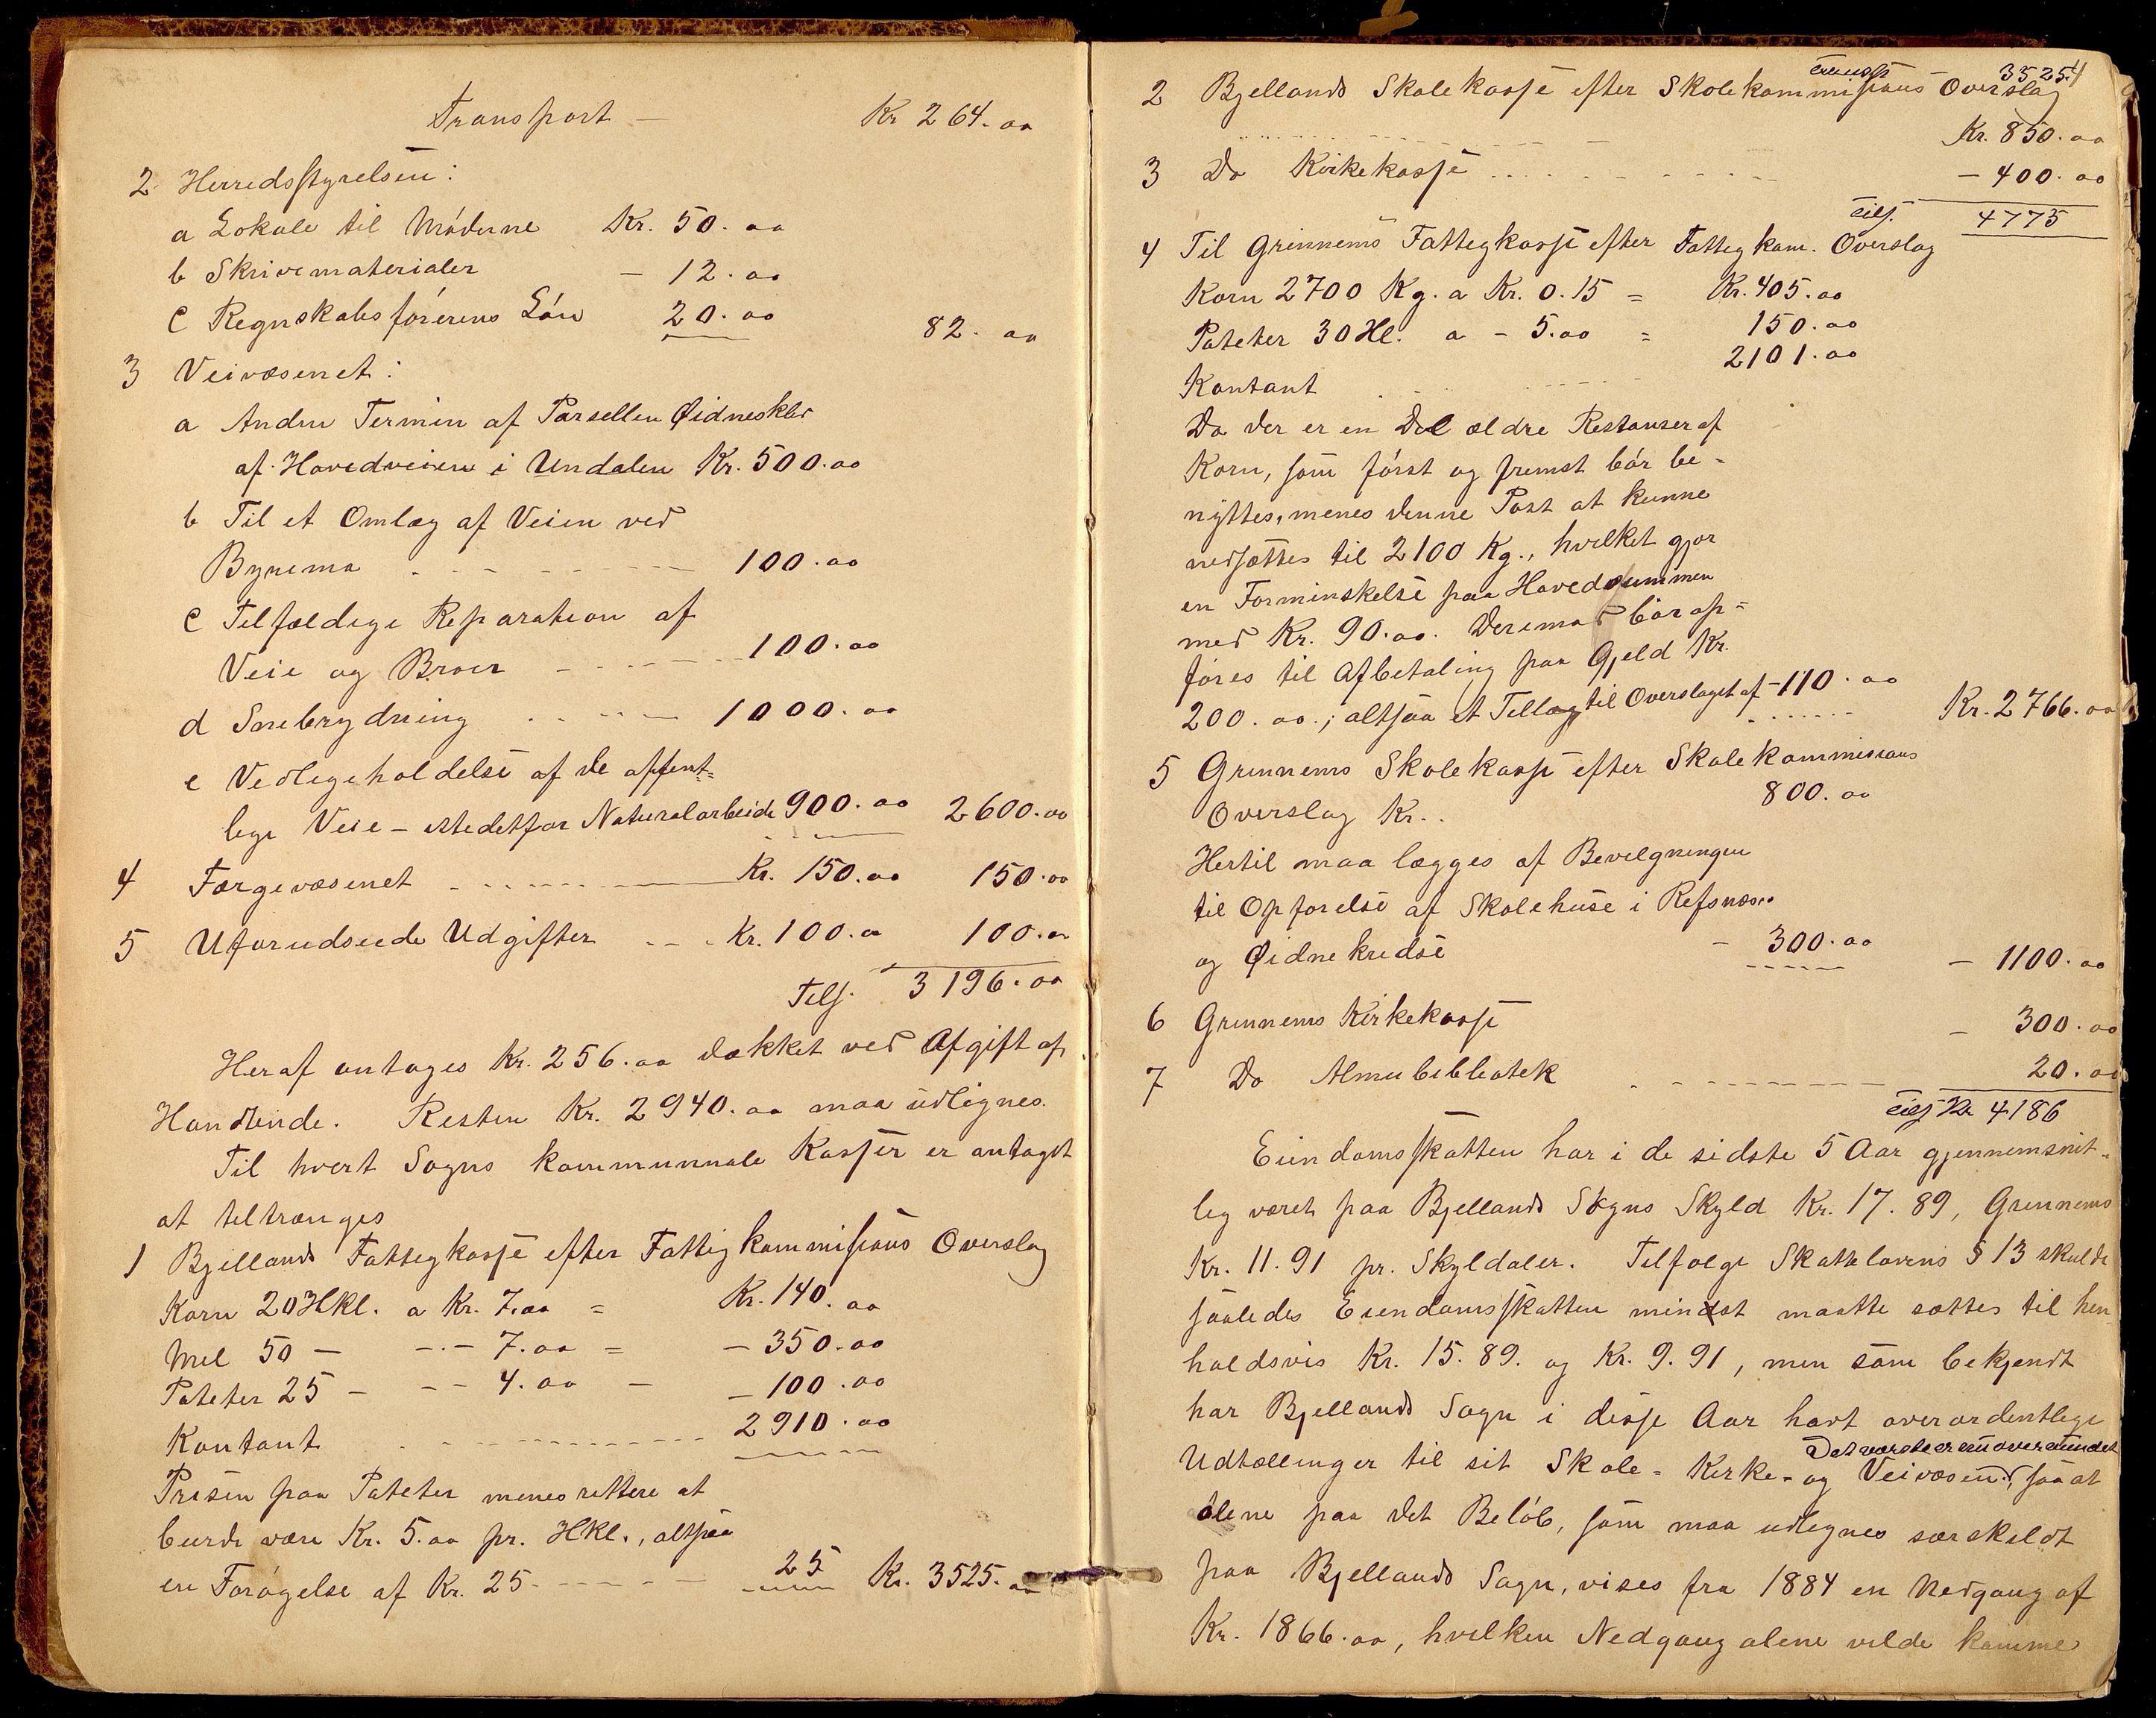 Transport — Kr 264.00
2 Herredsstyrelsen:
a Lokale til Møderne Kr. 50.00
b Skrivematerialer — 12.00
c Regnskabsførerens Løn 20.00 82.00
3 Veivæsenet:
a Anden Termin af Parsellen Øidneskler
af Hovedveien i Undalen Kr. 500.00
b Til et Omlæg af Veien ved
Byrema 100.00
c Tilfældige Reparation af
Veie og Broer 100.00
d Snebrydning 1000.00
e Vedligeholdelse af de offent=
lige Veie - istedetfor Naturalarbeide 900.00 2600.00
4 Færgevæsenet Kr. 150.00 150.00
5 Uforudseede Udgifter Kr. 100.00 100.00
Tils. 3196.00
Heraf antages Kr. 256.00 dækket ved Afgift af
Handlende. Resten Kr. 2940.00 maa udlignes.
Til hvert Sogns kommunnale Kasser er antaget
at tiltrænges
1 Bjellands Fattigkasse efter Fattigkommissions Overslag
Korn 20 Hkl. a Kr. 7.00 = Kr. 140.00
Mel 50 — -.- 7.00 = — 350.00
Poteter 25 — - - 4.00 — — 100.00
Kontant 2910.00
Prisen paa Poteter menes rettere at
burde være Kr. 5.00 pr. Hkl., altsaa
en Forøgelse af Kr. 25 25 Kr. 3525.00
Transp. 3525 4
2 Bjellands Skolekasse efter Skolekommissions Overslag
Kr. 850.00
3 Do Kirkekasse — 400.00
Tils. 4775
4 Til Grinnems Fattigkasse efter Fattigkom. Overslag
Korn 2700 Kg. a Kr. 0.15 = Kr. 405.00
Poteter 30 Hl. a - 5.00 = 150.00
Kontant 2101.00
Da der er en Del ældre Restanser af
Korn, som først og fremst bør be=
nyttes, menes denne Post at kunne
nedsættes til 2100 Kg., hvilket gjør
en Forminskelse paa Hovedsummen
med Kr. 90.00. Derimod bør op=
føres til Afbetaling paa Gjeld Kr.
200.00; altsaa et Tillæg til Overslaget af - 110.00 Kr. 2766.00
5 Grinnems Skolekasse efter Skolekommissions
Overslag Kr. 800.00
Hertil maa lægges af Bevilgningen
til Opførelse af Skolehuse i Refsnæs
og Øidne kredse — 300.00 — 1100.00
6 Grinnems Kirkekasse — 300.00
7 Do Almubibliotek 20.00
Tils Kr 4186
Eiendomsskatten har i de sidste 5 Aar gjennemsnit=
lig været paa Bjellands Sogns Skyld Kr. 17.89, Grinnems
Kr. 11.91 pr. Skyldaler. Tilfølge Skattelovens § 13 skulde
saaledes Eiendomsskatten mindst maatte sættes til hen
holdsvis Kr. 15.89. og Kr. 9.91, men som bekjendt
har Bjellands Sogn i disse Aar havt overordentlige
Det værste er nu overvundet
Udtællinger til sit Skole- Kirke- og Veivæsen, saa at
alene paa det Beløb, som maa udlignes særskildt
paa Bjellands Sogn, vises fra 1884 en Nedgang af
Kr. 1866.00, hvilken Nedgang alene vilde komme